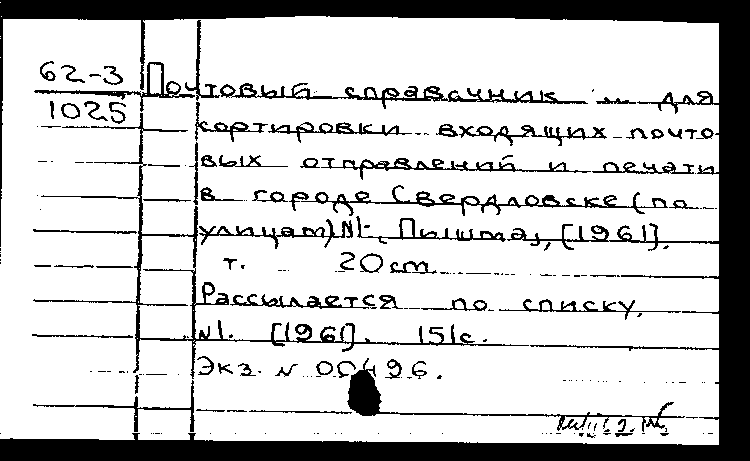 62-3
1025
Почтовый справочник ... для
сортировки входящих почто-
вых отправлений и печати
в городе Свердловске (по
улицам) №1-, Пышма, [1961].
т. 20cm.
Рассылается по списку.
№1. [1961]. 151с.
Экз. № 00496.